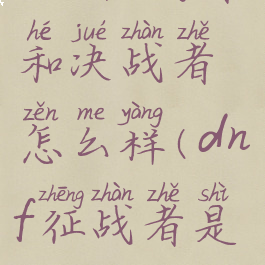 hé jué zhàn zhě
和决战者
zěn me yàng
怎么样(dn
zhēng zhàn zhě shì
f征战者是